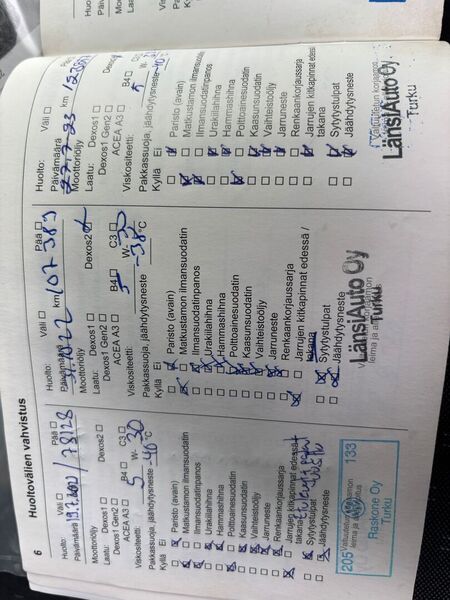 6
Huoltovälien vahvistus
Huolto: Väli Pää
Päivämäärä 78128
Moottoriöljy
Laatu: Dexos1 Dexos2
Dexos1 Gen2
ACEA A3 B4 C3
Viskositeetti: 5 W- 30
Pakkassuoja, jäähdytysneste -40 °C
Kyllä Ei
Paristo (avain)
Matkustamon ilmansuodatin
Ilmansuodatinpanos
Urakiilahihna
Hammashihna
Polttoainesuodatin
Kaasunsuodatin
Vaihteistoöljy
Jarruneste
Renkaankorjaussarja
Jarrujen kitkapinnat edessä/
takana
Sytytystulpat
Jäähdytysneste
205 133
Valtuutetun korjaamon
leima ja allekirjoitus
Raskone Oy
Turku
Huolto: Väli Pää
Päivämäärä km 107 383
Moottoriöljy
Laatu: Dexos1 Dexos2
Dexos1 Gen2
ACEA A3 B4 C3
Viskositeetti: 5 W- 30
Pakkassuoja, jäähdytysneste -38 °C
Kyllä Ei
Paristo (avain)
Matkustamon ilmansuodatin
Ilmansuodatinpanos
Urakiilahihna
Hammashihna
Polttoainesuodatin
Kaasunsuodatin
Vaihteistoöljy
Jarruneste
Renkaankorjaussarja
Jarrujen kitkapinnat edessä /
takana
Sytytystulpat
Jäähdytysneste
LänsiAuto Oy
Turku
Huolto: Väli
Päivämäärä km
Moottoriöljy
Laatu: Dexos1
Dexos1 Gen2
ACEA A3 B4
Viskositeetti: 5 W-
Pakkassuoja, jäähdytysneste -40
Kyllä Ei
Paristo (avain)
Matkustamon ilmansuodatin
Ilmansuodatinpanos
Urakiilahihna
Hammashihna
Polttoainesuodatin
Kaasunsuodatin
Vaihteistoöljy
Jarruneste
Renkaankorjaussarja
Jarrujen kitkapinnat edessä
takana
Sytytystulpat
Jäähdytysneste
LänsiAuto Oy
Turku